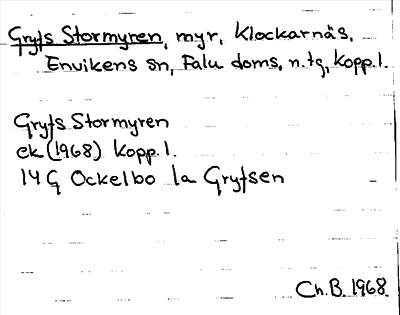 Gryts Stormyren, myr, Klockarnäs,
Envikens sn, Falu doms. n. tg, Kopp. l.
Gryts Stormyren
ek (1968) Kopp. l.
14 G Ockelbo 1a Grytsen
Ch. B. 1968